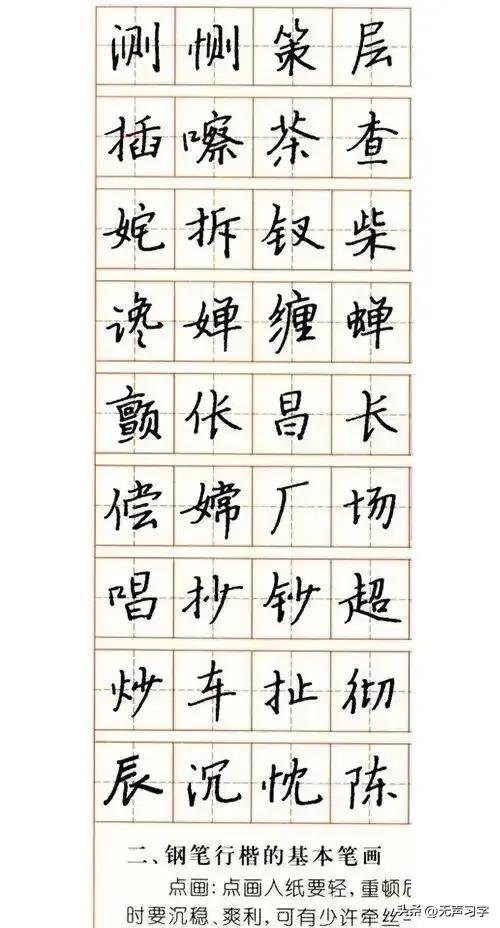 测恻策层
插嚓茶查
姹拆钗柴
谗婵缠蝉
颤伥昌长
偿嫦厂场
唱抄钞超
炒车扯彻
辰沉忱陈
二、钢笔行楷的基本笔画
点画：点画入纸要轻，重顿后
时要沉稳、爽利，可有少许牵丝
头条@无声习字